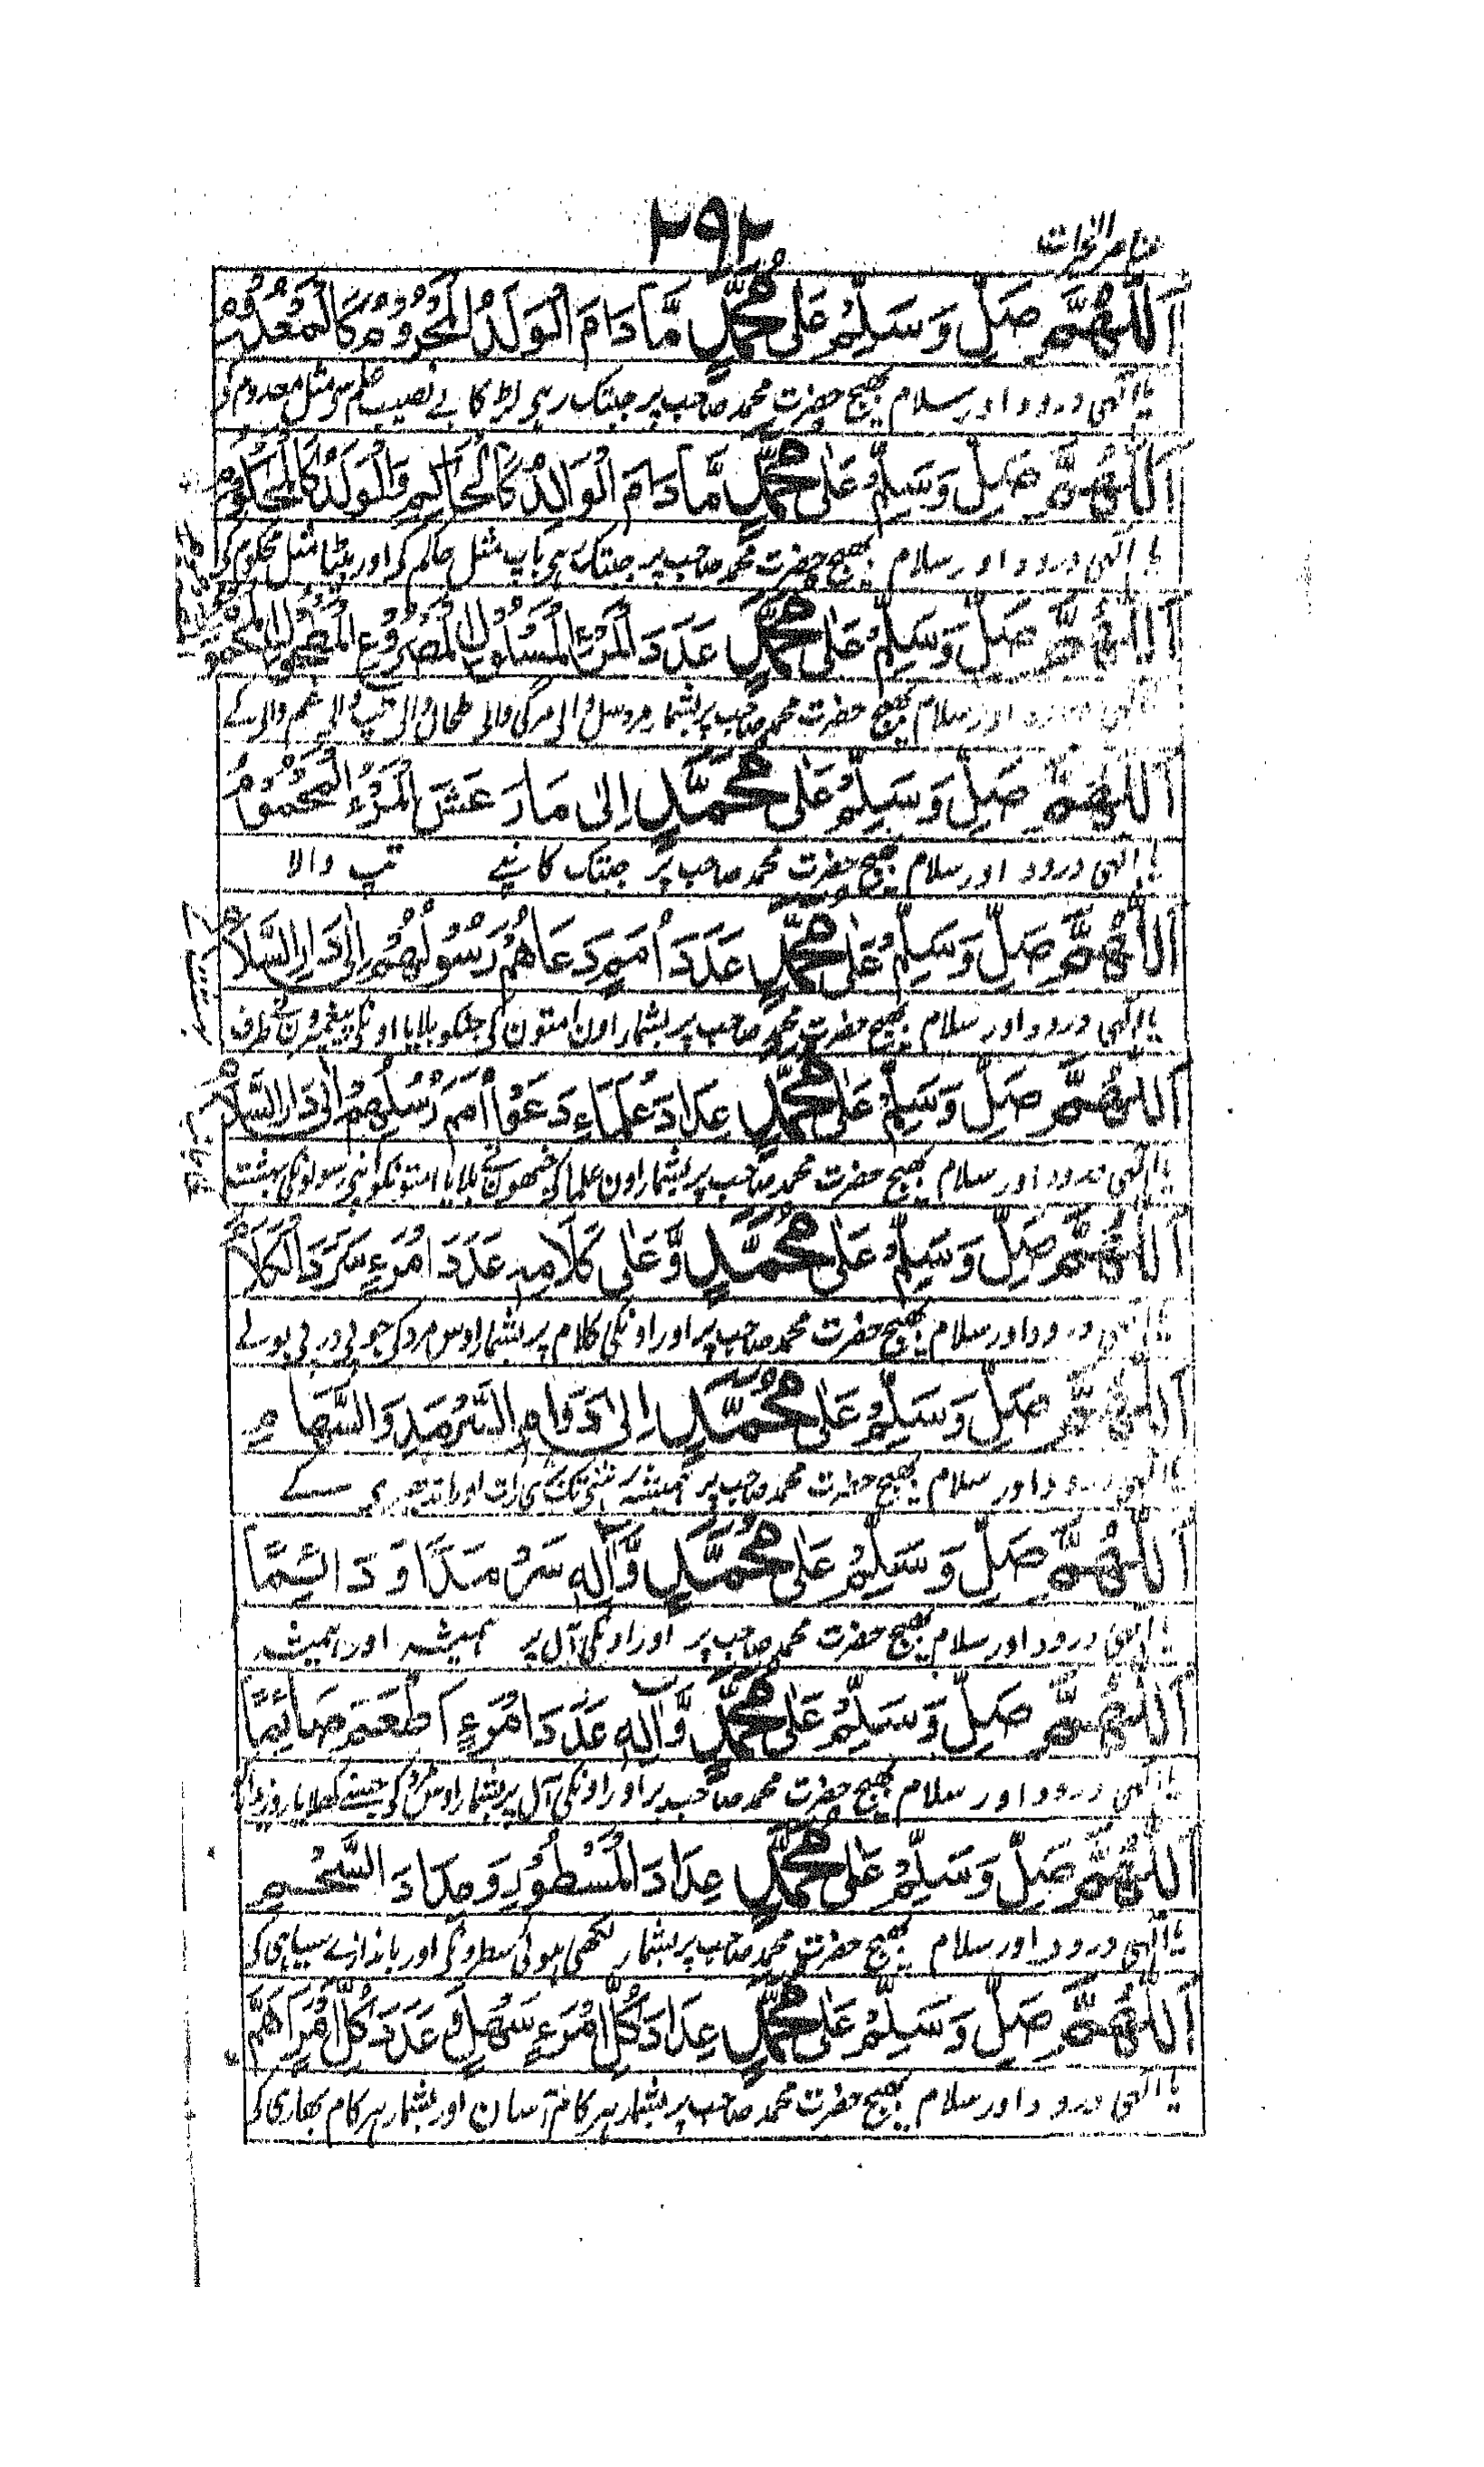 عناصر الخيرات
۲۹۲
اَللّٰهُمَّ صَلِّ وَسَلِّمْ عَلٰى مُحَمَّدٍ مَّا دَامَ الْوَلَدُ الْمَحْرُوْمُ كَالْمَعْدُوْمِ
یا الٰہی درود اور سلام بھیج حضرت محمد صاحب پر جبتک رہی لڑکا بے نصیب علم سی مثل معدوم کی
اَللّٰهُمَّ صَلِّ وَسَلِّمْ عَلٰى مُحَمَّدٍ مَّا دَامَ الْوَالِدُ كَالْحَاكِمِ وَالْوَلَدُ كَالْمَحْكُوْمِ
یا الٰہی درود اور سلام بھیج حضرت محمد صاحب پر جبتک رہی باپ مثل حاکم کی اور بیٹا مثل محکوم کی
اَللّٰهُمَّ صَلِّ وَسَلِّمْ عَلٰى مُحَمَّدٍ عَدَدَ الْمَرْءِ الْمَسْلُوْلِ الْمَصْرُوْعِ الْمَطْحُوْلِ الْمَحْمُوْمِ
الٰہی درود اور سلام بھیج حضرت محمد صاحب پر بشمار مرد سل والی مرگی والی طحال والی تپ والی غم والی کے
اَللّٰهُمَّ صَلِّ وَسَلِّمْ عَلٰى مُحَمَّدٍ اِلٰى مَا رَعَشَ الْمَرْءُ الْمَحْمُوْمُ
یا الٰہی درود اور سلام بھیج حضرت محمد صاحب پر جبتک کانپے تپ والا
اَللّٰهُمَّ صَلِّ وَسَلِّمْ عَلٰى مُحَمَّدٍ عَدَدَ اُمَمٍ دَعَاهُمْ رَسُوْلُهُمْ اِلٰى دَارِ السَّلَامِ
یا الٰہی درود اور سلام بھیج حضرت محمد صاحب پر بشمار اون امتون کی جنکو بلایا اونکی پیغمبرون نے طرف
اَللّٰهُمَّ صَلِّ وَسَلِّمْ عَلٰى مُحَمَّدٍ عِدَادَ عُلَمَاءٍ دَعَوْا اُمَمَ رُسُلِهِمْ اِلٰى دَارِ السَّلَامِ
یا الٰہی درود اور سلام بھیج حضرت محمد صاحب پر بشمار اون علما کی جنھون نے بلایا امتونکو اپنی رسولونکی بہشت
اَللّٰهُمَّ صَلِّ وَسَلِّمْ عَلٰى مُحَمَّدٍ وَّعَلٰى كَلَامِهٖ عَدَدَ امْرَءٍ سَرَدَ الْكَلَامَ
یا الٰہی درود اور سلام بھیج حضرت محمد صاحب پر اور اونکی کلام پر بشمار اوس مرد کی جو پی در پی بولے
اَللّٰهُمَّ صَلِّ وَسَلِّمْ عَلٰى مُحَمَّدٍ اِلٰى دَوَامِ السَّرْمَدِ وَالسَّهَامِ
یا الٰہی درود اور سلام بھیج حضرت محمد صاحب پر ہمیشہ تک رات اور اندھیری کے
اَللّٰهُمَّ صَلِّ وَسَلِّمْ عَلٰى مُحَمَّدٍ وَّاٰلِهٖ سَرْمَدًا وَّدَائِمًا
یا الٰہی درود اور سلام بھیج حضرت محمد صاحب پر اور اونکی آل پر ہمیشہ اور ہمیشہ
اَللّٰهُمَّ صَلِّ وَسَلِّمْ عَلٰى مُحَمَّدٍ وَّاٰلِهٖ عَدَدَ امْرَءٍ اَطْعَمَ صَائِمًا
یا الٰہی درود اور سلام بھیج حضرت محمد صاحب پر اور اونکی آل پر بشمار اوس مرد کی جسنے کھلایا روزہ دار کو
اَللّٰهُمَّ صَلِّ وَسَلِّمْ عَلٰى مُحَمَّدٍ عِدَادَ الْمُسْطُوْرِ وَمِدَادَ السُّحُمِ
یا الٰہی درود اور سلام بھیج حضرت محمد صاحب پر بشمار لکھی ہوئی سطرونکی اور باندازے سیاہی کی
اَللّٰهُمَّ صَلِّ وَسَلِّمْ عَلٰى مُحَمَّدٍ عِدَادَ كُلِّ امْرَءٍ سَهْلٍ وَّعَدَدَ كُلِّ اَمْرٍ اَهَمَّ
یا الٰہی درود اور سلام بھیج حضرت محمد صاحب پر بشمار ہر کام آسان اور بشمار ہر کام بھاری کی